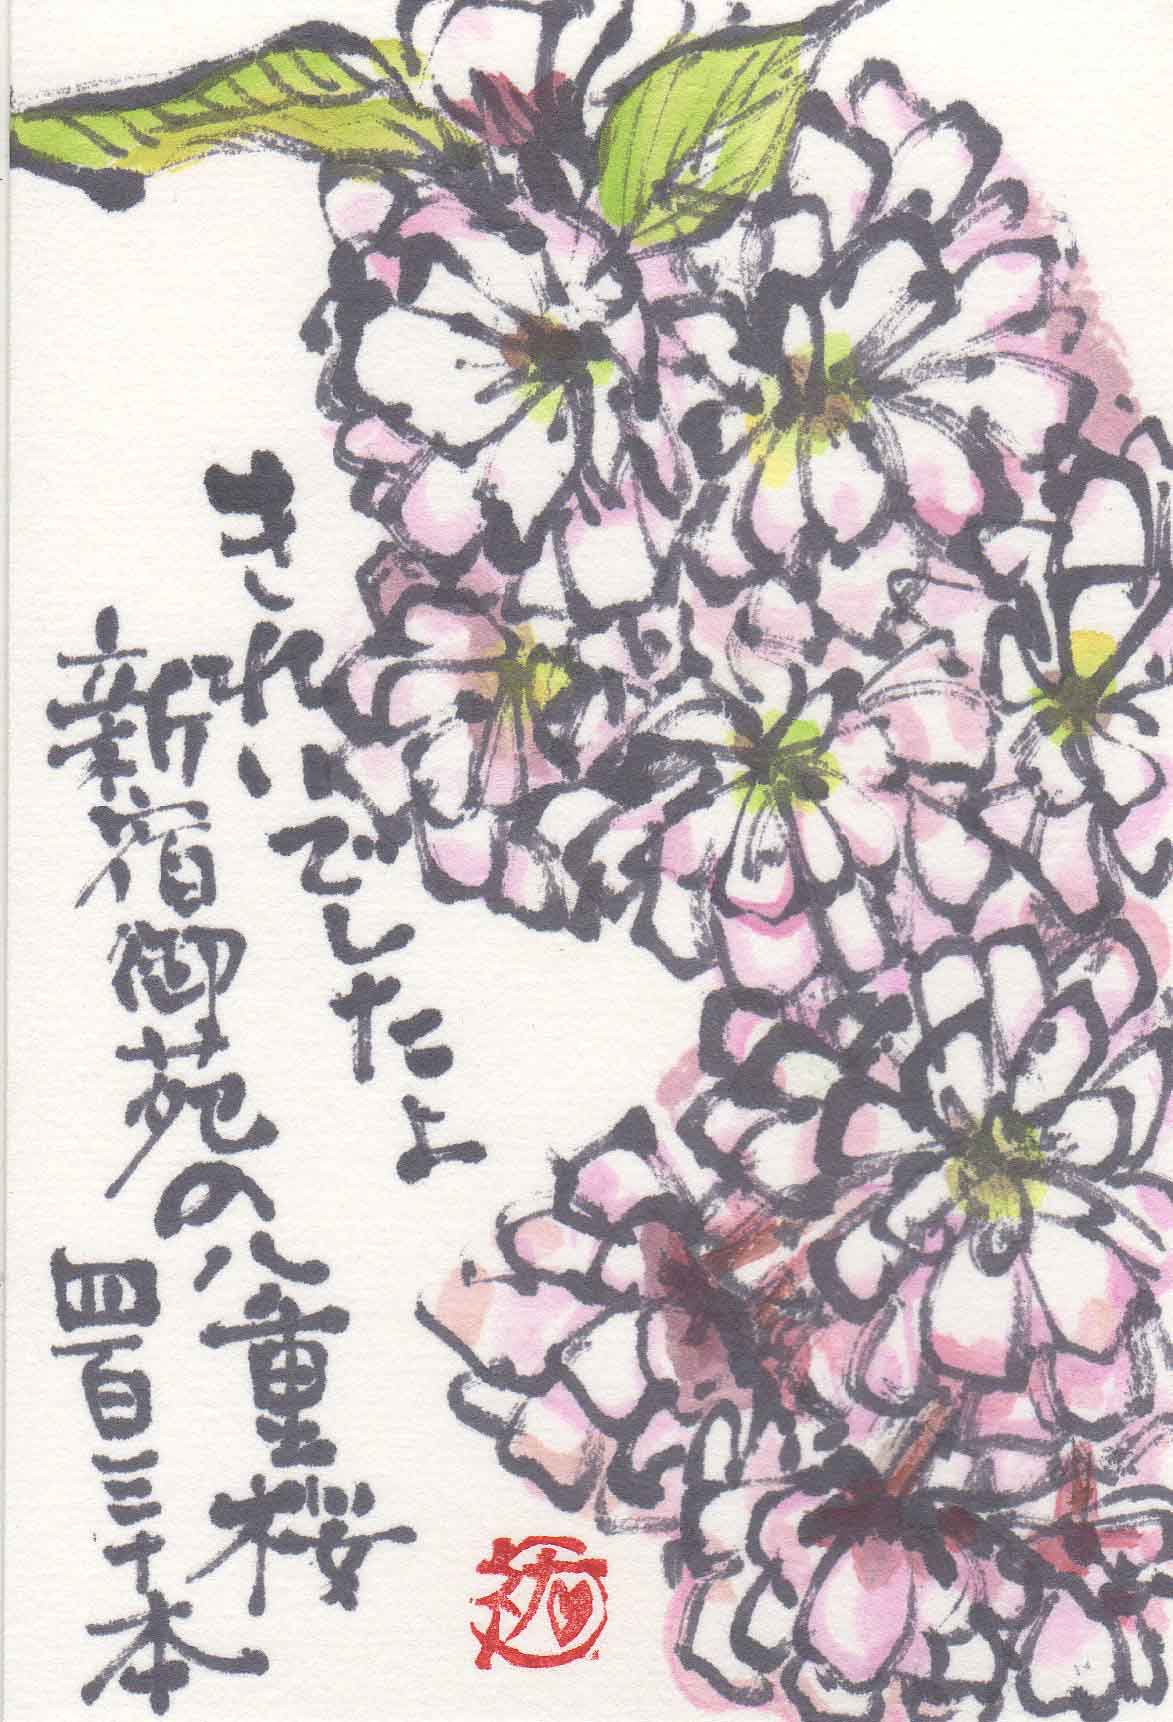 きれいでしたよ
新宿御苑の八重桜
四百三十本